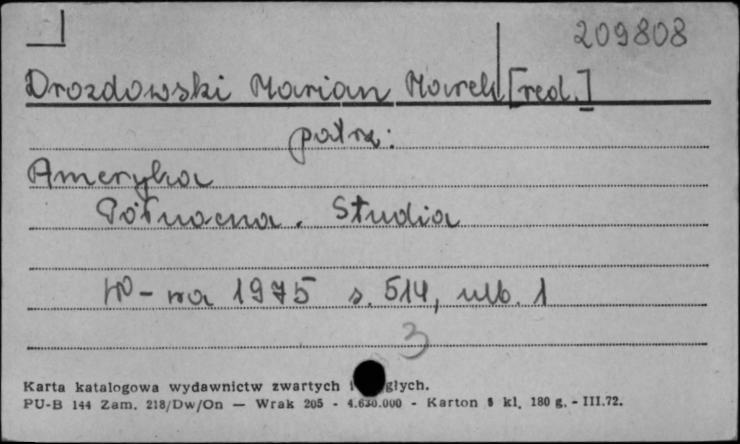 209808
Drozdowski Marian Marek [red.]
patrz:
Ameryka
Północna. Studia
W-wa 1975 s. 514, nlb. 1
3
Karta katalogowa wydawnictw zwartych i głych.
PU-B 144 Zam. 218/Dw/On — Wrak 205 - 4.630.000 - Karton kl. 180 g. - III.72.